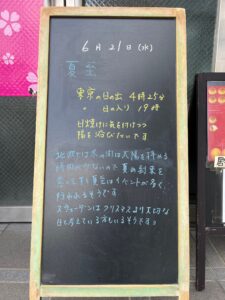 6月21日(水)
夏至
東京の日の出 4時25分
〃 日の入り 19時
日焼けに気を付けつつ
陽を浴びたいです
北欧では冬の間は太陽を拝める
時間が少ないので夏の到来を
祝って夏至はイベントが多く
行われるそうです
スウェーデンはクリスマスより大切な
日と考えている方もいるそうです